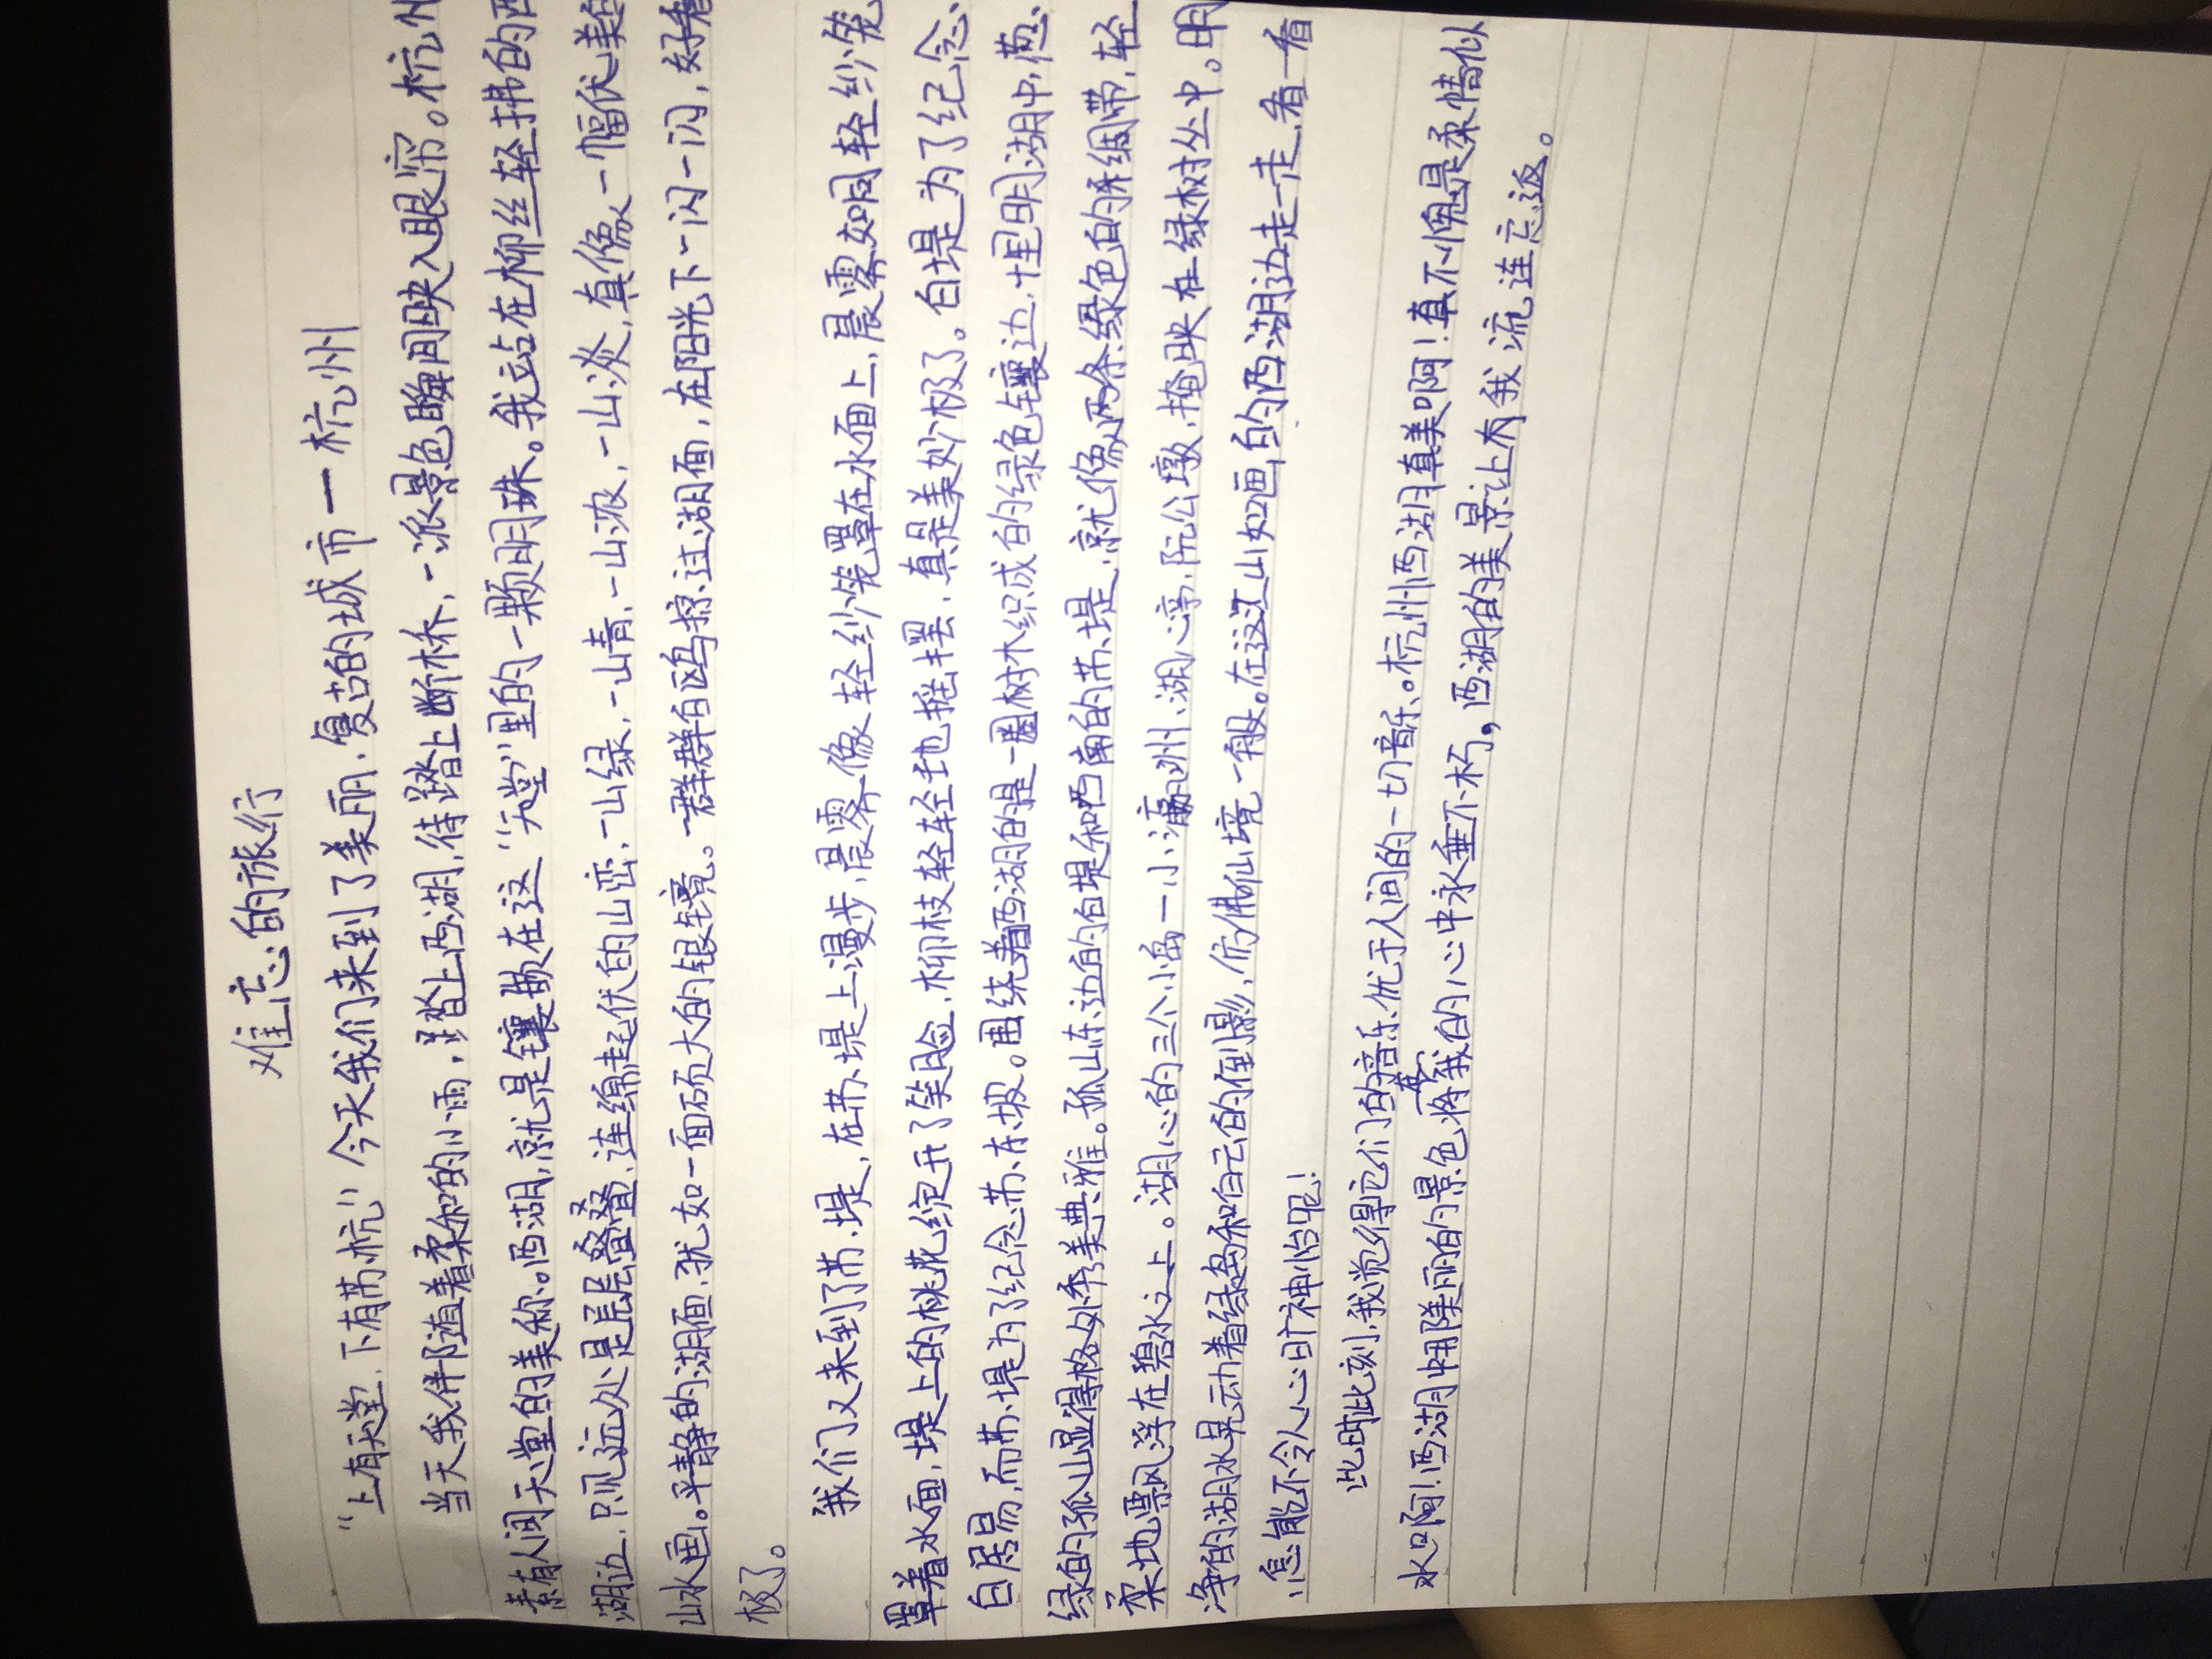 难忘的旅行
“上有天堂,下有苏杭”今天我们来到了美丽,复苦的城市一杭州
当天我伴随着柔和的小雨,踏上西湖,待踏上断桥,一派景色瞬间映入眼帘。杭州
素有人间天堂的美称。西湖,就是镶嵌在这“天堂”里的一颗明珠。我站在柳丝轻拂的西
湖边,只见远处是层层叠叠,连绵起伏的山峦,一山绿,一山青,一山浓,一山淡,真像一幅伏美的
山水画。平静的湖面,犹如一面硕大的银镜。一群群白鸥掠过湖面,在阳光下一闪一闪,好看
极了。
我们又来到了苏堤,在苏堤上漫步,晨雾像轻纱笼罩在水面上,晨雾如同轻纱笼
罩着水面,堤上的桃花绽开了笑脸,柳枝轻轻地摇摆,真是美妙极了。白堤是为了纪念
白居易,而苏堤是为了纪念苏东坡。围绕着西湖的是一圈树木织成的绿色镶边,十里明湖中,葱
绿的孤山显得格外秀美典雅。孤山东边的白堤和西南的苏堤,就像两条绿色的绸带,轻
柔地漂风浮在碧水之上。湖心的三个小岛一小瀛洲、湖心亭、阮公墩,掩映在绿树丛中。明
净的湖水晃动着绿岛和白云的倒影,仿佛仙境一般。在这江山如画的西湖边走一走,看一看
怎能不令人心旷神怡呢!
此时此刻,我觉得它们的音乐优于人间的一切音乐。杭州西湖真美啊!真不愧是柔情似
水啊!西湖中那美丽的景色将在我的心中永垂不朽,西湖的美景让有我流连忘返。